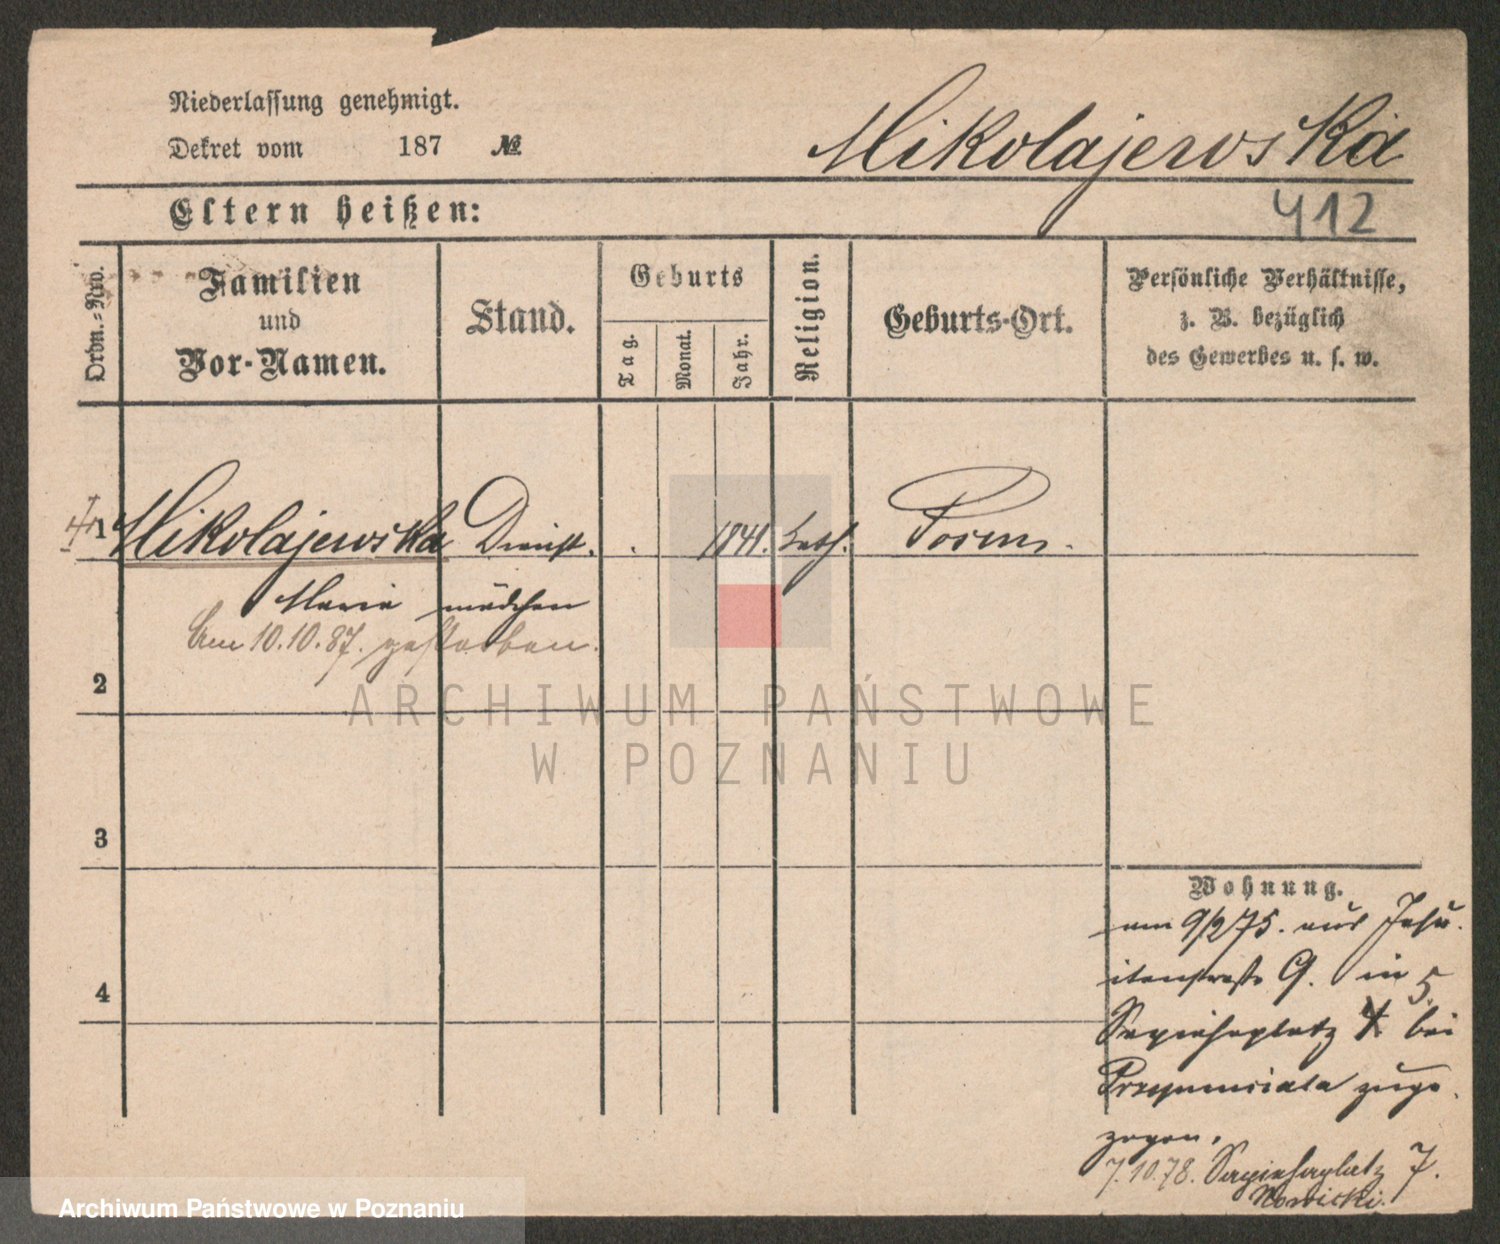 Niederlassung genehmigt.
Dekret vom 187 №
Mikolajewska
Eltern heißen:
412
Ordn.-Nro.
Familien
und
Vor-Namen.
Stand.
Geburts
Tag.
Monat.
Jahr.
Religion.
Geburts-Ort.
Persönliche Verhältnisse,
z. B. bezüglich
des Gewerbes u. s. w.
1 Mikolajewska Dienst. 1841. kath. Posen.
Maria mädchen
Am 10.10.87. gestorben.
2
ARCHIWUM PAŃSTWOWE
W POZNANIU
3
4
Wohnung.
am 9/2 75. aus Jesu
itenstraße 9. in 5
Sapiehaplatz bei
zuge
zogen.
7.10.78. Sapiehaplatz 7.
Nowicki.
Archiwum Państwowe w Poznaniu